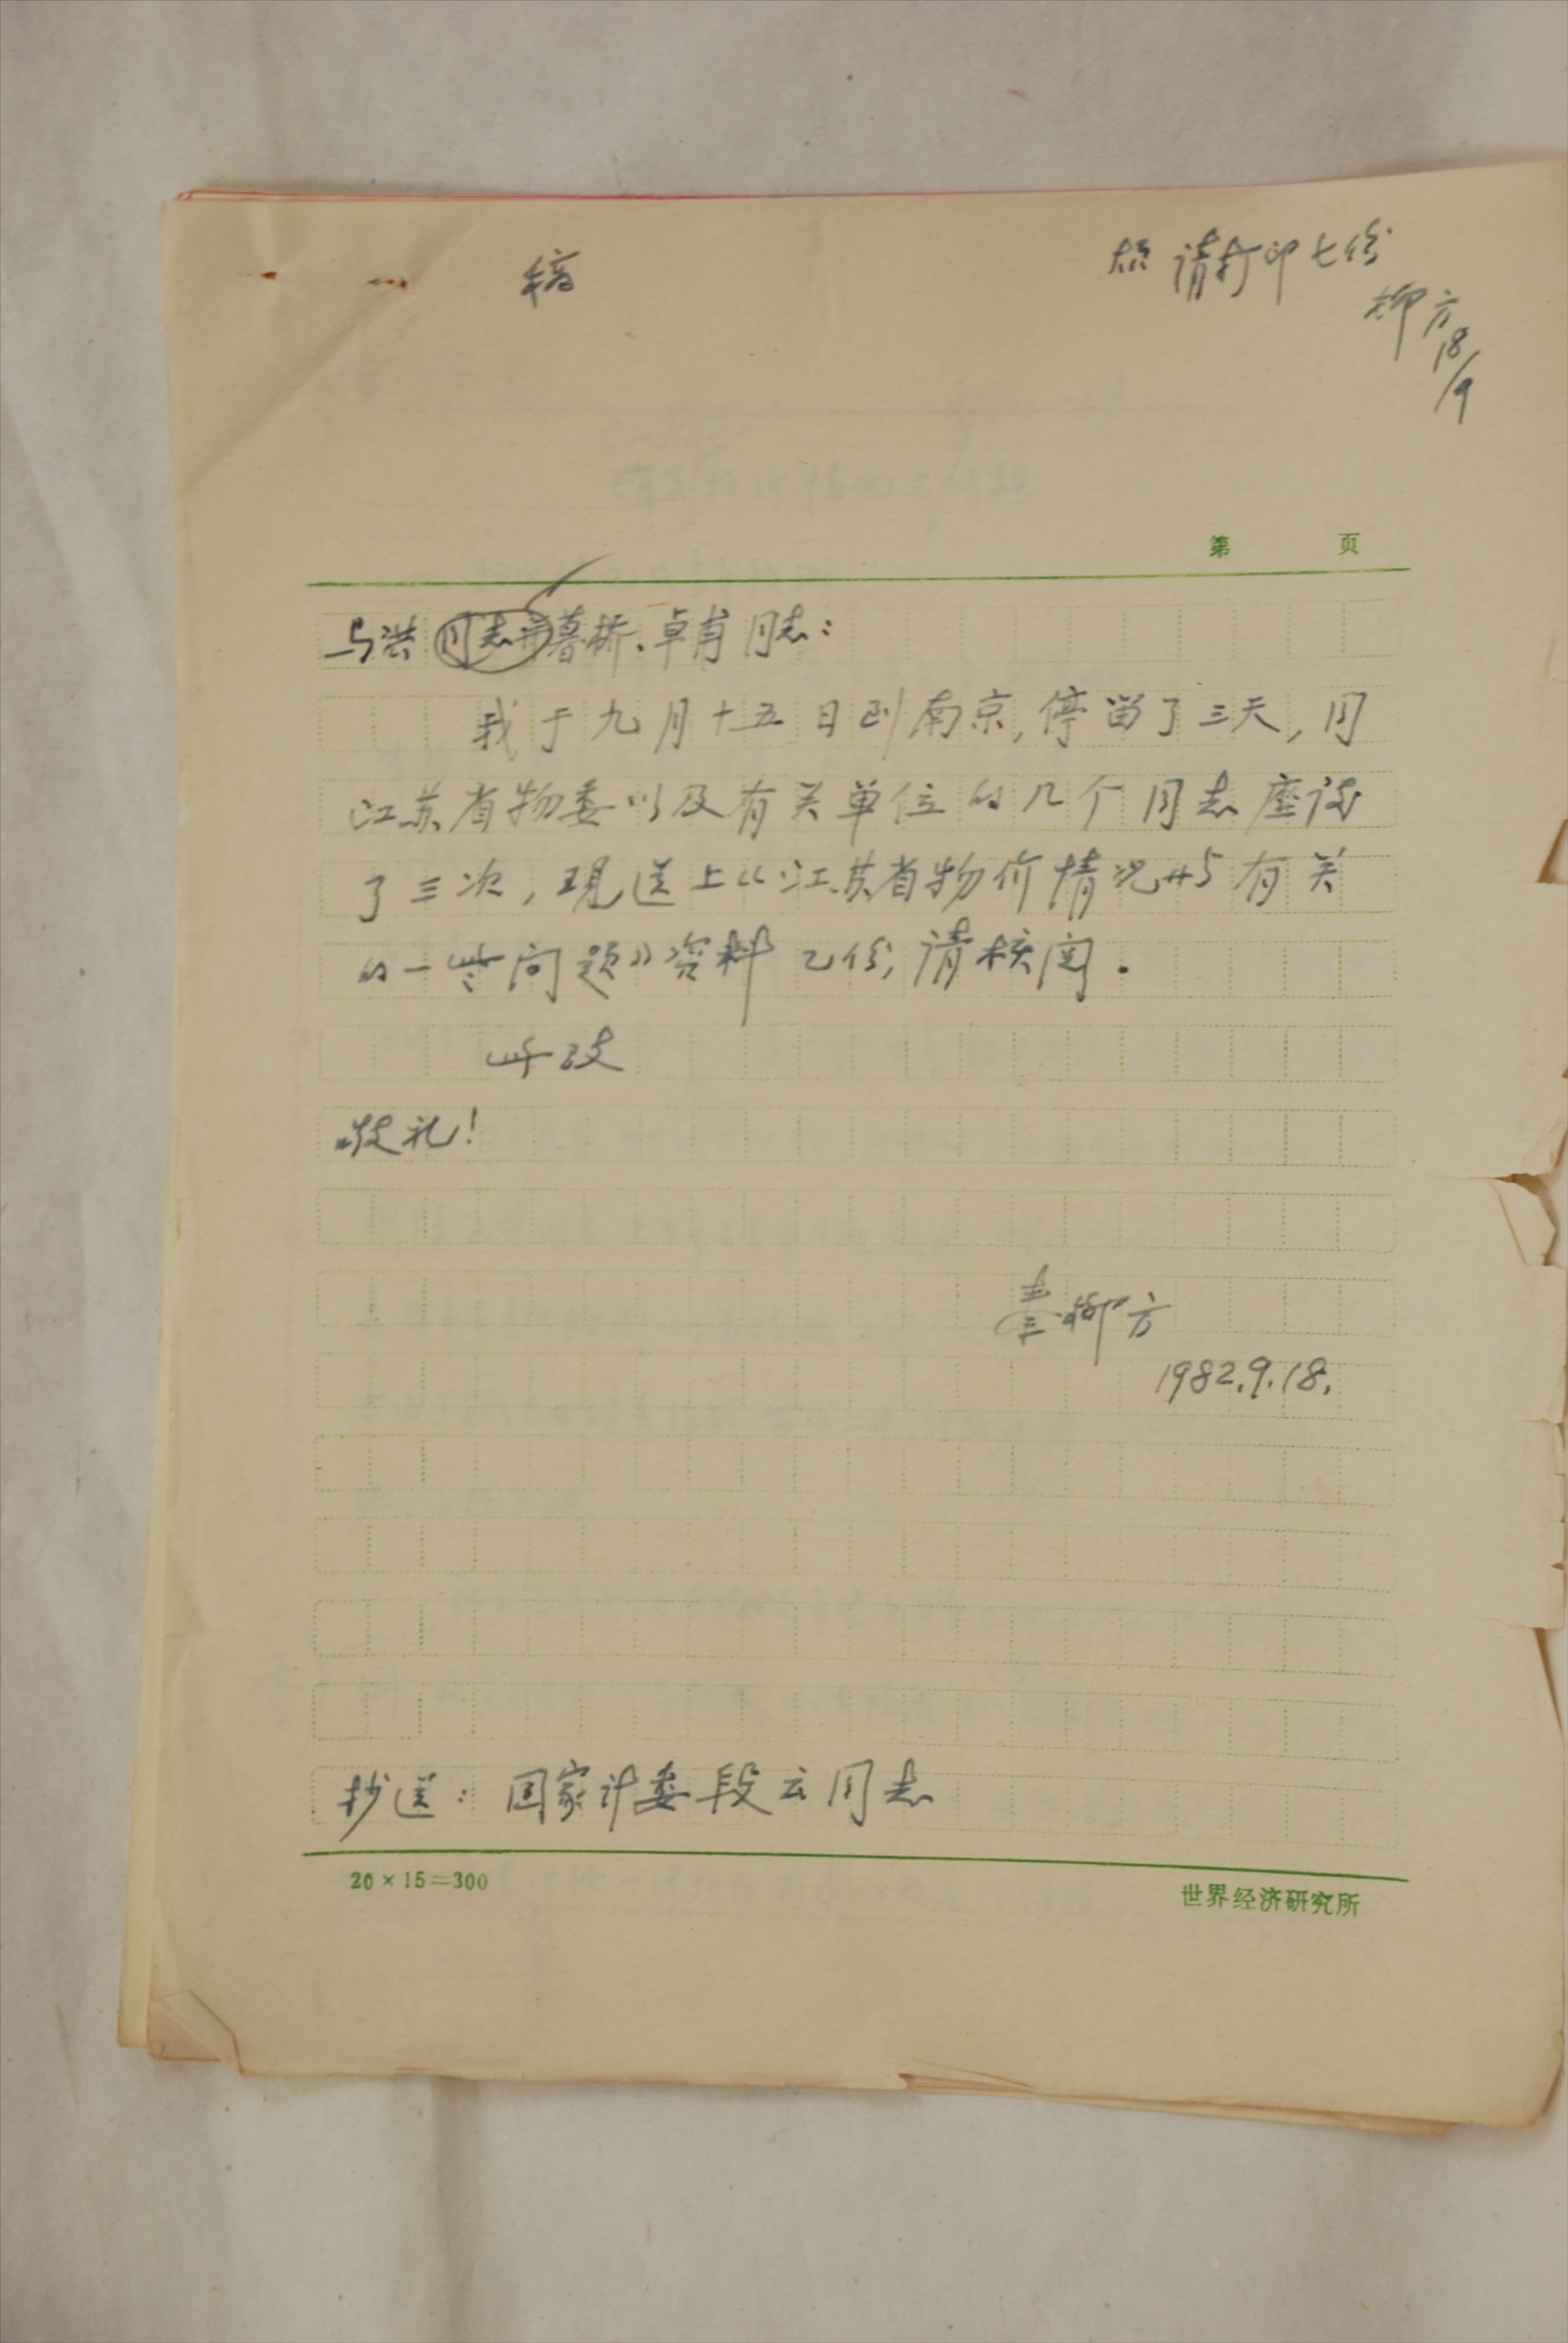 稿
请打印七份
柳方
18/9
第 页
马洪同志并暮桥、卓甫同志：
我于九月十五日到南京,停留了三天,同
江苏省物委以及有关单位的几个同志座谈
了三次,现送上《江苏省物价情况与有关
的一些问题》资料乙份,请核阅.
此致
敬礼！
秦柳方
1982.9.18.
抄送：国家计委段云同志
20×15=300
世界经济研究所